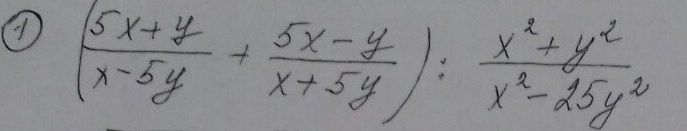 ① ( (5x+y)/(x-5y) + (5x-y)/(x+5y) ) : (x²+y²)/(x²-25y²)